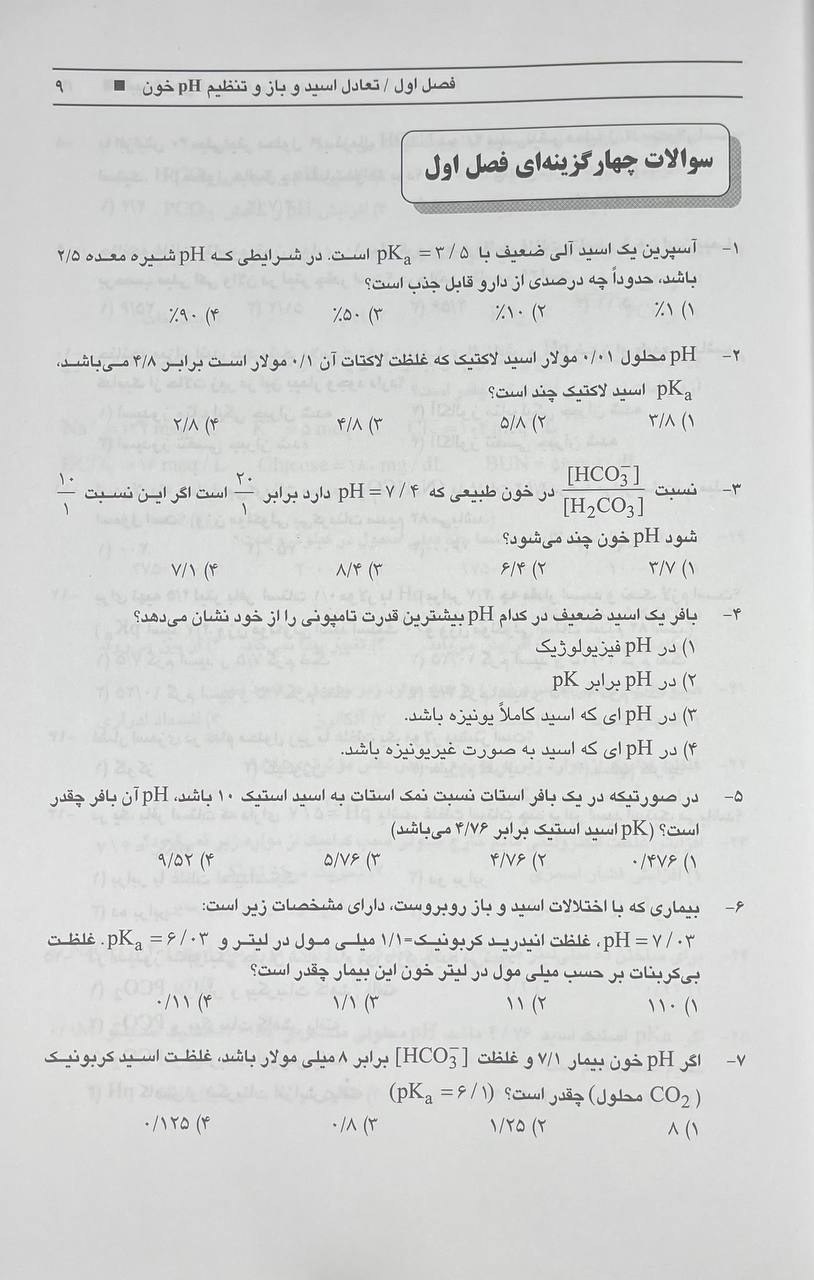 فصل اول / تعادل اسید و باز و تنظیم pH خون ■ ۹
سوالات چهارگزینه‌ای فصل اول
۱- آسپرین یک اسید آلی ضعیف با pKa = ۳/۵ است. در شرایطی که pH شیره معده ۲/۵
باشد، حدوداً چه درصدی از دارو قابل جذب است؟
۱) ۱٪ ۲) ۱۰٪ ۳) ۵۰٪ ۴) ۹۰٪
۲- pH محلول ۰/۰۱ مولار اسید لاکتیک که غلظت لاکتات آن ۰/۱ مولار است برابر ۴/۸ می‌باشد،
pKa اسید لاکتیک چند است؟
۱) ۳/۸ ۲) ۵/۸ ۳) ۴/۸ ۴) ۲/۸
۳- نسبت [HCO₃⁻]/[H₂CO₃] در خون طبیعی که pH = ۷/۴ دارد برابر ۲۰/۱ است اگر این نسبت ۱۰/۱
شود pH خون چند می‌شود؟
۱) ۳/۷ ۲) ۶/۴ ۳) ۸/۴ ۴) ۷/۱
۴- بافر یک اسید ضعیف در کدام pH بیشترین قدرت تامپونی را از خود نشان می‌دهد؟
۱) در pH فیزیولوژیک
۲) در pH برابر pK
۳) در pH ای که اسید کاملاً یونیزه باشد.
۴) در pH ای که اسید به صورت غیریونیزه باشد.
۵- در صورتیکه در یک بافر استات نسبت نمک استات به اسید استیک ۱۰ باشد، pH آن بافر چقدر
است؟ (pK اسید استیک برابر ۴/۷۶ می‌باشد)
۱) ۰/۴۷۶ ۲) ۴/۷۶ ۳) ۵/۷۶ ۴) ۹/۵۲
۶- بیماری که با اختلالات اسید و باز روبروست، دارای مشخصات زیر است:
pH = ۷/۰۳، غلظت انیدرید کربونیک=۱/۱ میلی مول در لیتر و pKa = ۶/۰۳. غلظت
بی‌کربنات بر حسب میلی مول در لیتر خون این بیمار چقدر است؟
۱) ۱۱۰ ۲) ۱۱ ۳) ۱/۱ ۴) ۰/۱۱
۷- اگر pH خون بیمار ۷/۱ و غلظت [HCO₃⁻] برابر ۸ میلی مولار باشد، غلظت اسید کربونیک
(CO₂ محلول) چقدر است؟ (pKa = ۶/۱)
۱) ۸ ۲) ۱/۲۵ ۳) ۰/۸ ۴) ۰/۱۲۵